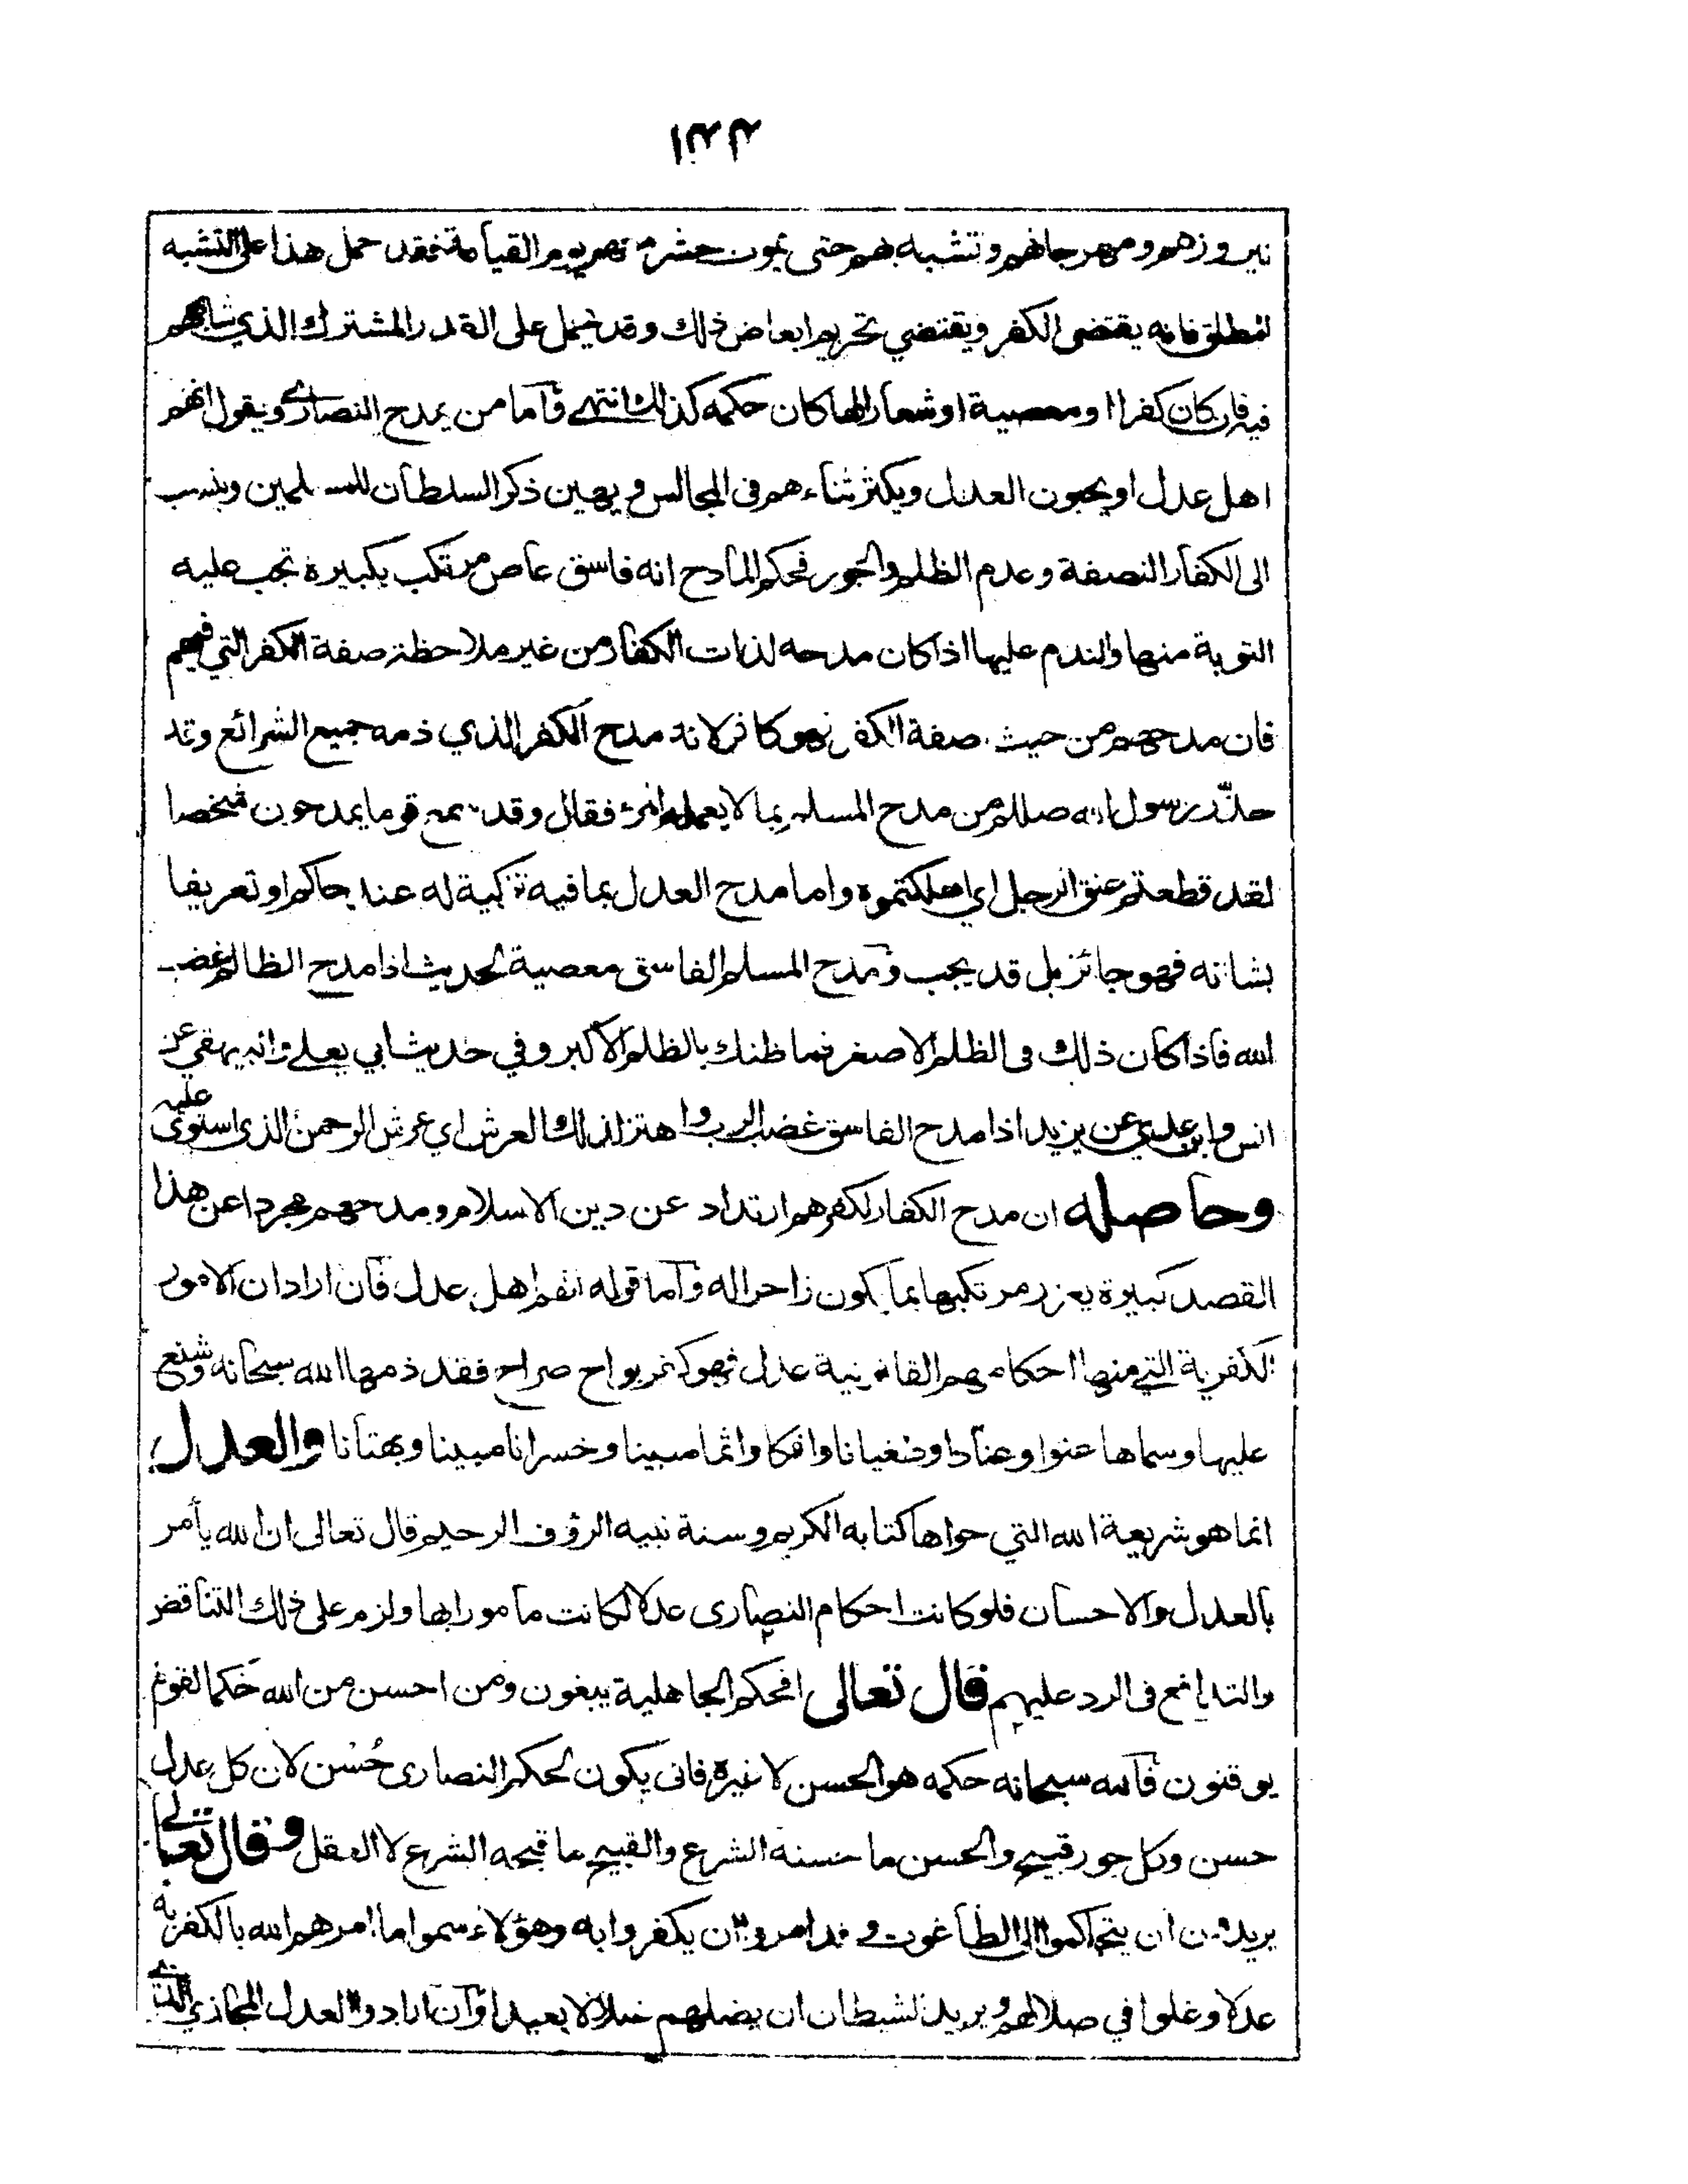 نيروزهم ومهرجانهم وتشبه بهم حتى يموت حشر معهم يوم القيامة فقد حمل هذا على التشبه
المطلق فانه يقتضي الكفر ويقتضي تحريم ابعاض ذلك وقد يحمل على القدر المشترك الذي شابههم
فيه فان كان كفرا او معصية او شعارا لها كان حكمه كذلك انتهى فأما من يمدح النصارى ويقول انهم
اهل عدل او يحبون العدل ويكثر ثناءهم في المجالس ويهين ذكر السلطان للمسلمين وينسب
الى الكفار النصفة وعدم الظلم والجور فحكم المادح انه فاسق عاص مرتكب بكبيرة تجب عليه
التوبة منها والندم عليها اذا كان مدحه لذات الكفار من غير ملاحظة صفة الكفر التي فيهم
فان مدحهم من حيث صفة الكفر فهو كافر لانه مدح الكفر الذي ذمه جميع الشرائع وقد
حذّر رسول الله صللم من مدح المسلم بما لا يعمله المرء فقال وقد سمع قوما يمدحون شخصا
لقد قطعتم عنق الرجل اي اهلكتموه واما مدح العدل بما فيه تزكية له عند حاكم او تعريفا
بشانه فهو جائز بل قد يجب ومدح المسلم الفاسق معصية لحديث اذا مدح الظالم غضب
الله فاذا كان ذلك في الظلم الاصغر فما ظنك بالظلم الاكبر وفي حديث ابي يعلى والبيهقي عن
انس وابن عدي عن بريد اذا مدح الفاسق غضب الرب واهتز لذلك العرش اي عرش الرحمن الذي استوى عليه
وحاصله ان مدح الكفار لكفرهم ارتداد عن دين الاسلام ومدحهم مجردا عن هذا
القصد كبيرة يعزر مرتكبها بما يكون زاجرا له وأما قوله انهم اهل عدل فان اراد ان الامور
الكفرية التي منها احكامهم القانونية عدل فهو كفر بواح صراح فقد ذمها الله سبحانه وشنع
عليها وسماها عتوا وعنادا وطغيانا وافكا واثما مبينا وخسرانا مبينا وبهتانا والعدل
انما هو شريعة الله التي حواها كتابه الكريم وسنة نبيه الرؤف الرحيم قال تعالى ان الله يأمر
بالعدل والاحسان فلو كانت احكام النصارى عدلا لكانت مأمورا بها ولزم على ذلك التناقض
والتدافع في الرد عليهم قال تعالى افحكم الجاهلية يبغون ومن احسن من الله حكما لقوم
يوقنون فالله سبحانه حكمه هو الحسن لا غيره فانى يكون لحكم النصارى حُسْن لان كل عدل
حسن وكل جور قبيح والحسن ما حسنه الشرع والقبيح ما قبحه الشرع لا العقل وقال تعالى
يريدون ان يتحاكموا الى الطاغوت وقد امروا ان يكفروا به وهؤلاء سموا ما امرهم الله بالكفر به
عدلا وغلوا في ضلالهم ويريد الشيطان ان يضلهم ضلالا بعيدا وان ارادوا العدل المجازي الذي